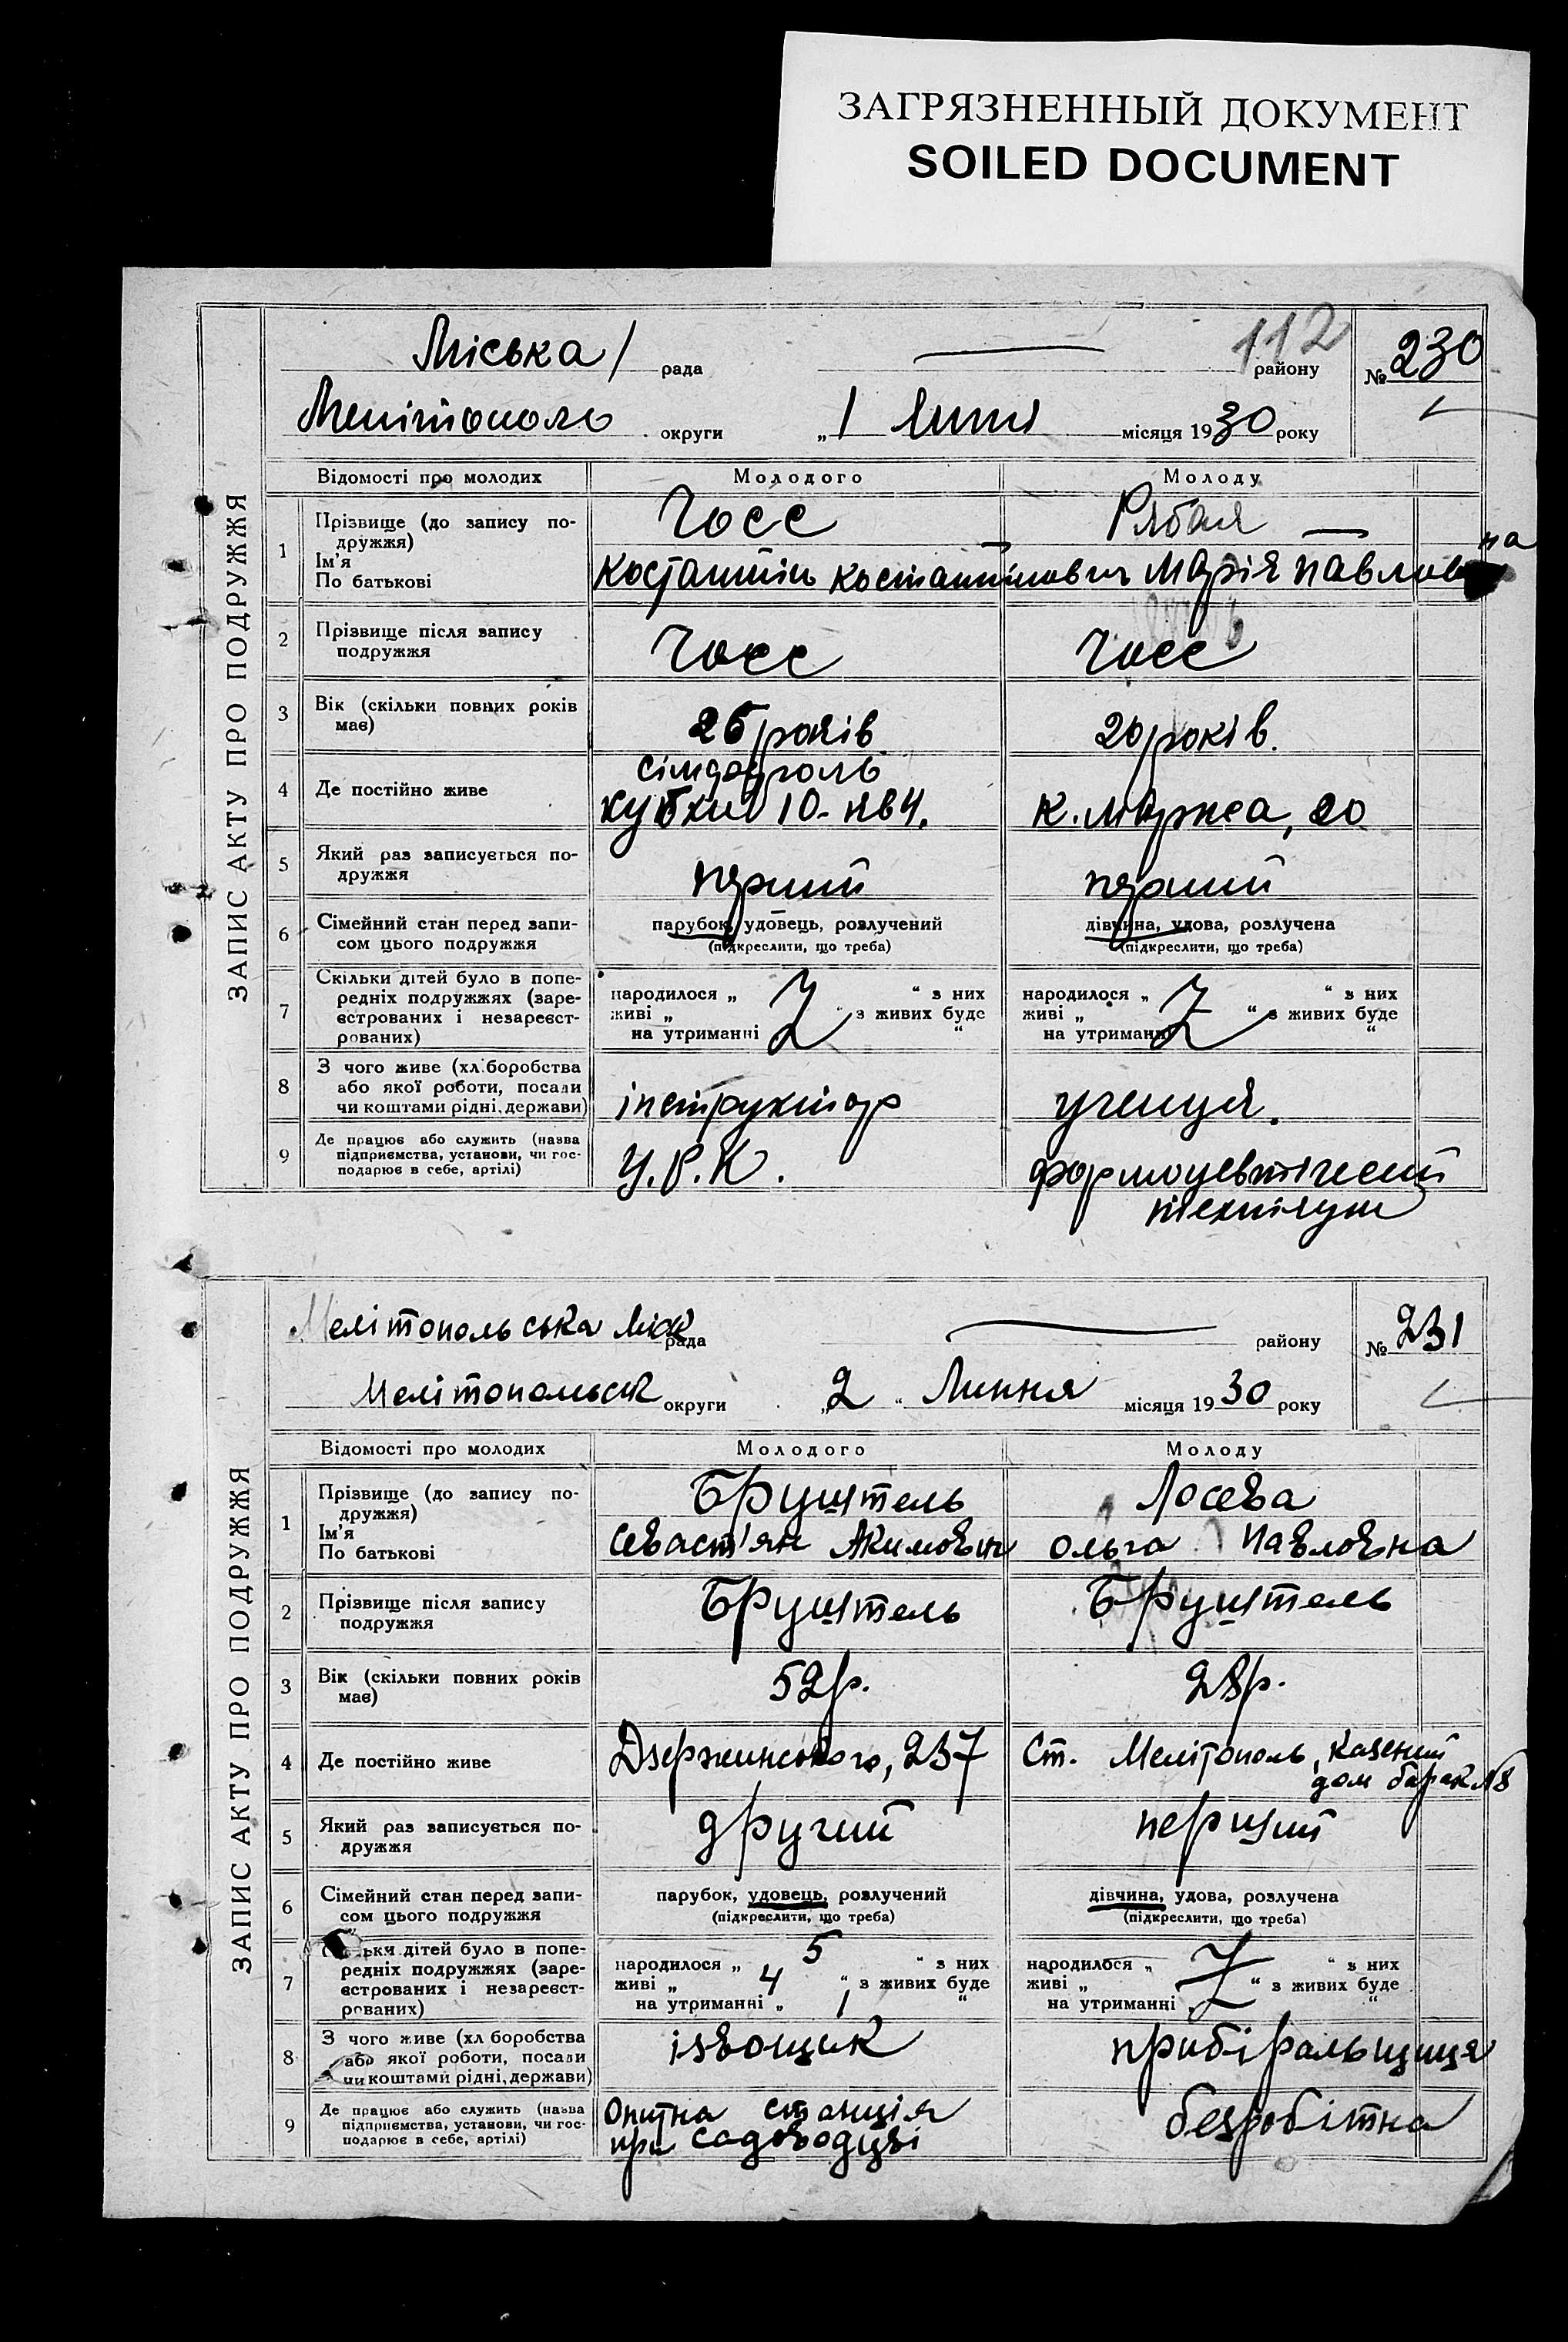 ЗАГРЯЗНЕННЫЙ ДОКУМЕНТ
SOILED DOCUMENT
112
ЗАПИС АКТУ ПРО ПОДРУЖЖЯ
Міська рада району № 230
Мелітополь округи „1 липня місяця 1930 року
Відомості про молодих Молодого Молоду
1 Прізвище (до запису по-
дружжя)
Ім'я
По батькові
Госс Рябая
Костантін Костантінович Марія Павловна
2 Прізвище після запису
подружжя
Госс Госс
3 Вік (скільки повних років
має)
25 років 20 років.
4 Де постійно живе
Сімфароль
10. кв 4. К. Маркса, 20
5 Який раз записується по-
дружжя
перший перший
6 Сімейний стан перед запи-
сом цього подружжя
парубок, удовець, розлучений дівчина, удова, розлучена
(підкреслити, що треба) (підкреслити, що треба)
7 Скільки дітей було в попе-
редніх подружжях (заре-
єстрованих і незареєст-
рованих)
народилося „ “ з них народилося „ “ з них
живі „ “ з живих буде живі „ “ з живих буде
на утриманні “ на утриманні “
8 З чого живе (хліборобства
або якої роботи, посади
чи коштами рідні, держави)
інструктор учениця.
9 Де працює або служить (назва
підприємства, установи, чи гос-
подарює в себе, артілі)
У.Р.К. формоцевтіческий
техникум
ЗАПИС АКТУ ПРО ПОДРУЖЖЯ
Мелітопольська Міск рада району № 231
Мелітопольськ округи „2“ Липня місяця 1930 року
Відомості про молодих Молодого Молоду
1 Прізвище (до запису по-
дружжя)
Ім'я
По батькові
Бруштель Лосева
Севаст'ян Акимович Ольга Павловна
2 Прізвище після запису
подружжя
Бруштель Бруштель
3 Вік (скільки повних років
має)
52 р. 28 р.
4 Де постійно живе
Дзержинського, 237 Ст. Мелітополь, казений
дом барак №8
5 Який раз записується по-
дружжя
другий перший
6 Сімейний стан перед запи-
сом цього подружжя
парубок, удовець, розлучений дівчина, удова, розлучена
(підкреслити, що треба) (підкреслити, що треба)
7 Скільки дітей було в попе-
редніх подружжях (заре-
єстрованих і незареєст-
рованих)
народилося „ 5 “ з них народилося „ “ з них
живі „ 4 “ з живих буде живі „ “ з живих буде
на утриманні „ 1 “ на утриманні “
8 З чого живе (хліборобства
або якої роботи, посади
чи коштами рідні, держави)
ізвощик прибіральщиця
9 Де працює або служить (назва
підприємства, установи, чи гос-
подарює в себе, артілі)
Опитна станція безробітна
при садоводцві